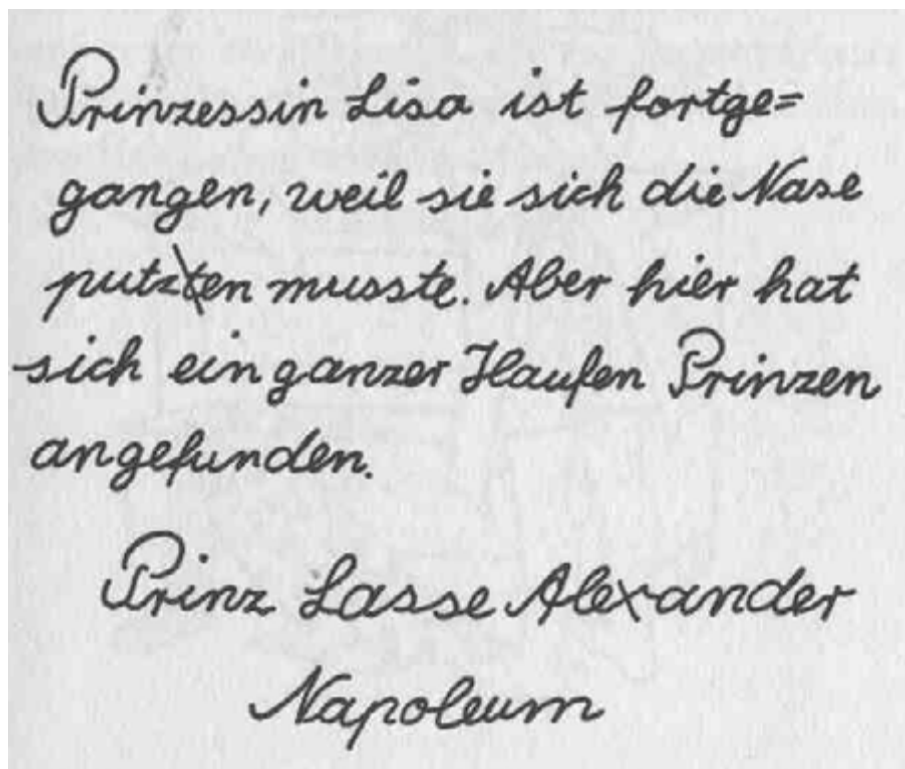 Prinzessin Lisa ist fortge=
gangen, weil sie sich die Nase
putzten musste. Aber hier hat
sich ein ganzer Haufen Prinzen
angefunden.
Prinz Lasse Alexander
Napoleum